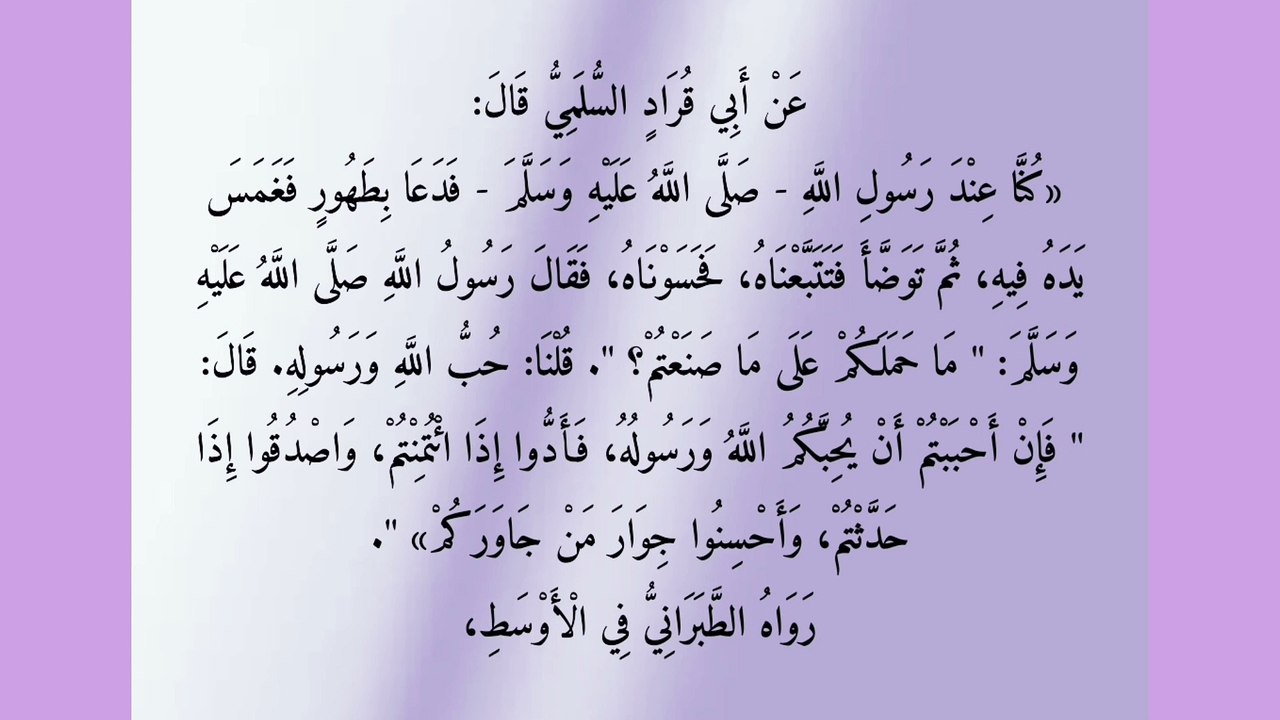 عَنْ أَبِي قُرَادٍ السُّلَمِيُّ قَالَ:
«كُنَّا عِنْدَ رَسُولِ اللَّهِ - صَلَّى اللَّهُ عَلَيْهِ وَسَلَّمَ - فَدَعَا بِطَهُورٍ فَغَمَسَ
يَدَهُ فِيهِ، ثُمَّ تَوَضَّأَ فَتَتَبَّعْنَاهُ، فَحَسَوْنَاهُ، فَقَالَ رَسُولُ اللَّهِ صَلَّى اللَّهُ عَلَيْهِ
وَسَلَّمَ: " مَا حَمَلَكُمْ عَلَى مَا صَنَعْتُمْ؟ ". قُلْنَا: حُبُّ اللَّهِ وَرَسُولِهِ. قَالَ:
" فَإِنْ أَحْبَبْتُمْ أَنْ يُحِبَّكُمُ اللَّهُ وَرَسُولُهُ، فَأَدُّوا إِذَا ائْتُمِنْتُمْ، وَاصْدُقُوا إِذَا
حَدَّثْتُمْ، وَأَحْسِنُوا جِوَارَ مَنْ جَاوَرَكُمْ» ".
رَوَاهُ الطَّبَرَانِيُّ فِي الْأَوْسَطِ،